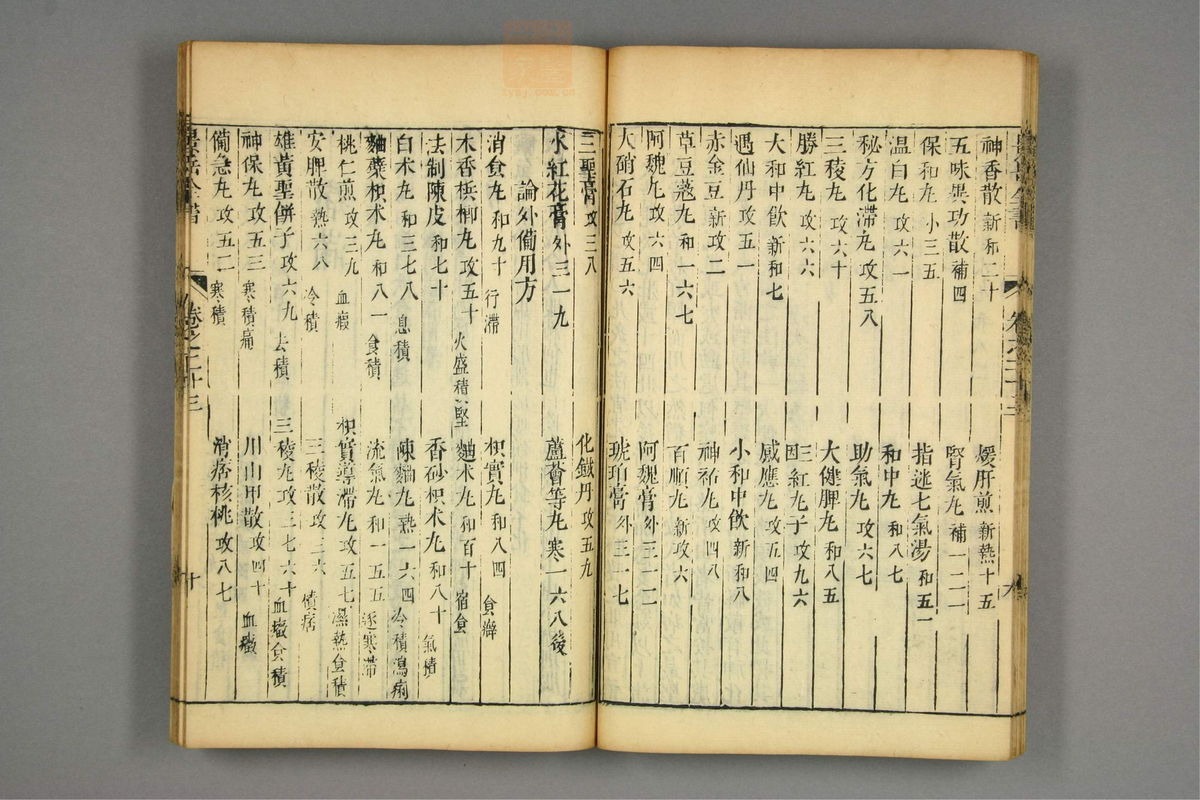 神香散 新和二十 煖肝煎 新熱十五
五味異功散 補四 腎氣丸 補一二一
保和丸 小三五 指迷七氣湯 和五一
温白丸 攻六一 和中丸 和八七
秘方化滯丸 攻五八 助氣丸 攻六七
三稜丸 攻六十 大健脾丸 和八五
勝紅丸 攻六六 三紅丸子 攻九六
大和中飲 新和七 感應丸 攻五四
遇仙丹 攻五一 小和中飲 新和八
赤金豆 新攻二 神祐丸 攻四八
草豆蔻丸 和一六七 百順丸 新攻六
阿魏丸 攻六四 阿魏膏 外三一二
大硝石丸 攻五六 琥珀膏 外三一七
三聖膏 攻三八 化鐵丹 攻五九
水紅花膏 外三一九 蘆薈等丸 寒一六八後
論外備用方
消食丸 和九十 行滯 枳實丸 和八四 食癖
木香檳榔丸 攻五十 火盛積堅 麯术丸 和百十 宿食
法制陳皮 和七十 香砂枳术丸 和八十 氣積
白术丸 和三七八 息積 陳麯丸 熱一六四 冷積瀉痢
麯蘗枳术丸 和八一 食積 流氣丸 和一五五 逐寒滯
桃仁煎 攻三九 血瘕 枳實導滯丸 攻五七 濕熱食積
安脾散 熱六八 冷積 三稜散 攻三六 積痞
雄黃聖餅子 攻六九 去積 三稜丸 攻三七 六十 血癥食積
神保丸 攻五三 寒積痛 川山甲散 攻四十 血癥
備急丸 攻五二 寒積 消痞核桃 攻八七
景岳全書 卷之二十三 十